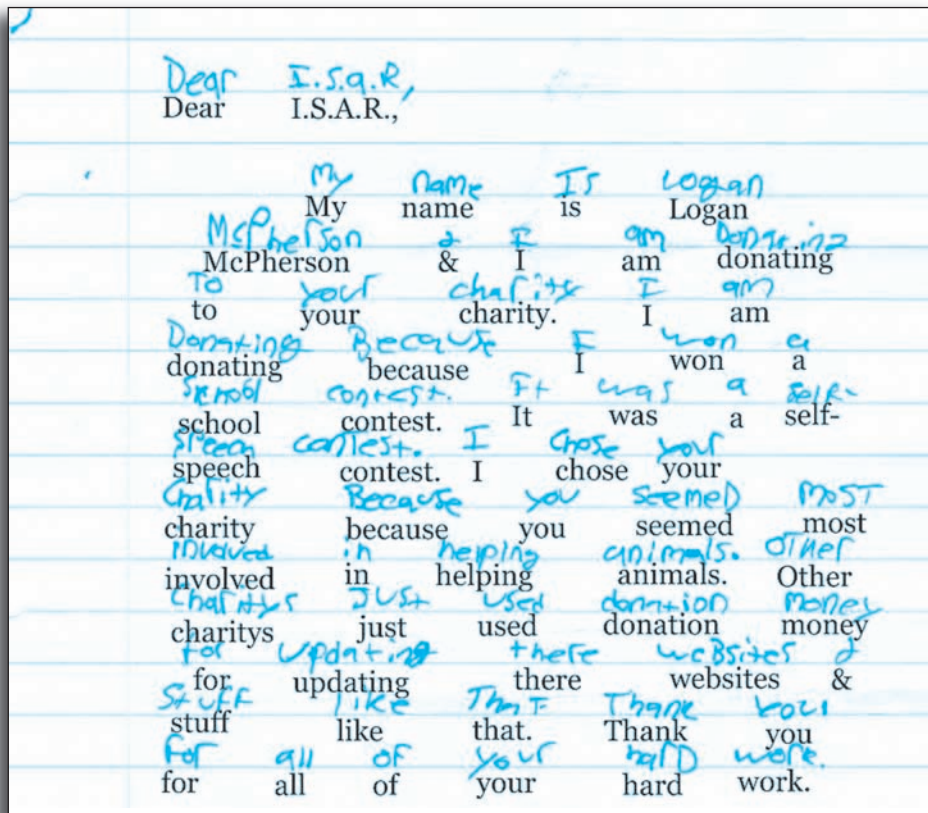 Dear I.S.a.R,
Dear I.S.A.R.,
My name Is Logan
My name is Logan
McPherson & I am Donating
McPherson & I am donating
To your charity I am
to your charity. I am
Donating Because I won a
donating because I won a
School contest. It was a self-
school contest. It was a self-
speech contest. I chose your
speech contest. I chose your
Charity Because you seemeD MOST
charity because you seemed most
involved in helping animals. Other
involved in helping animals. Other
Charitys Just used donation Money
charitys just used donation money
for Updating there weBsites &
for updating there websites &
Stuff like That Thank you
stuff like that. Thank you
for all of your harD work.
for all of your hard work.